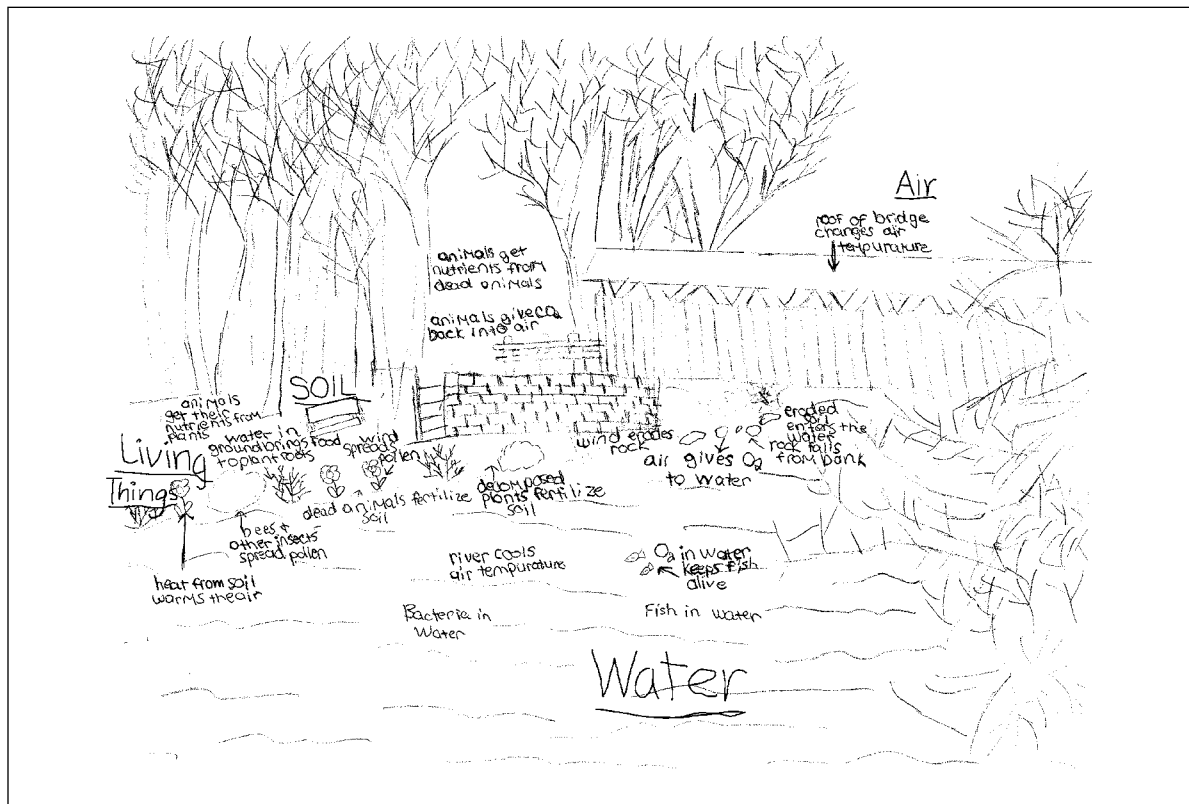 Air
roof of bridge
changes air
tempurature
animals get
nutrients from
dead animals
animals give CO2
back into air
SOIL
animals
get their
nutrients from
plants
water in
ground brings food
to plant roots
wind
spreads
pollen
Living
Things
wind erodes
rock
eroded
soil
enters the
water
rock falls
from bank
air gives O2
to water
decomposed
plants fertilize
soil
dead animals fertilize
soil
bees &
other insects
spread pollen
heat from soil
warms the air
river cools
air tempurature
O2 in water
keeps fish
alive
Bacteria in
Water
Fish in water
Water